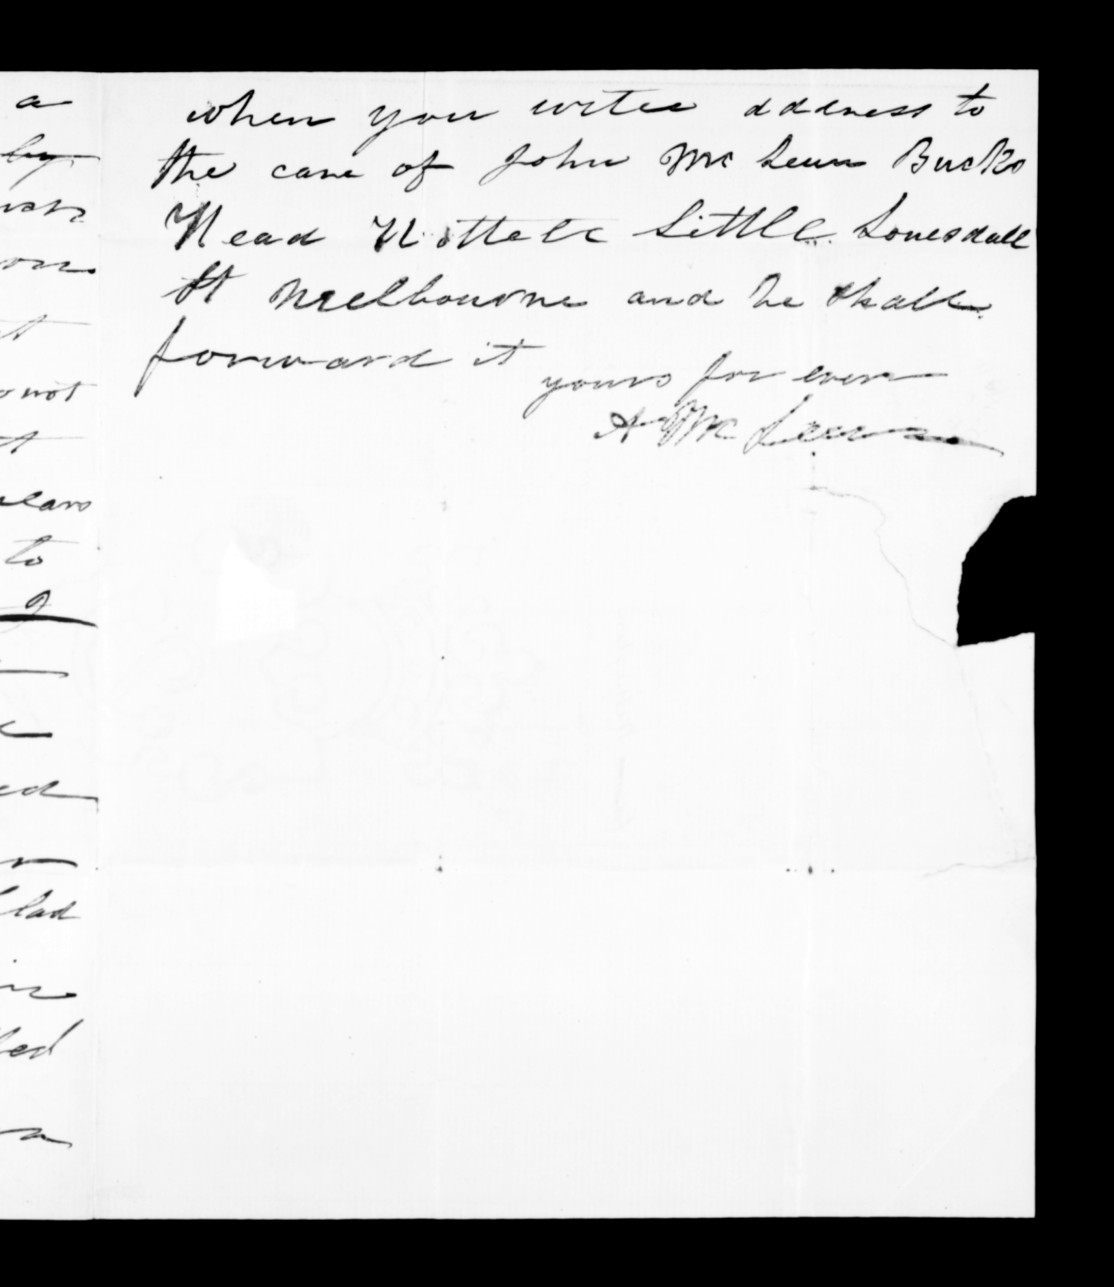 a
by
not
t
to
I
ed
lad
ed
a
when you write address to
the care of John Mc Lean Bucks
Head Hottele Little Lonesdall
St Melbourne and he shall
forward it
yours for ever
A Mc Lean